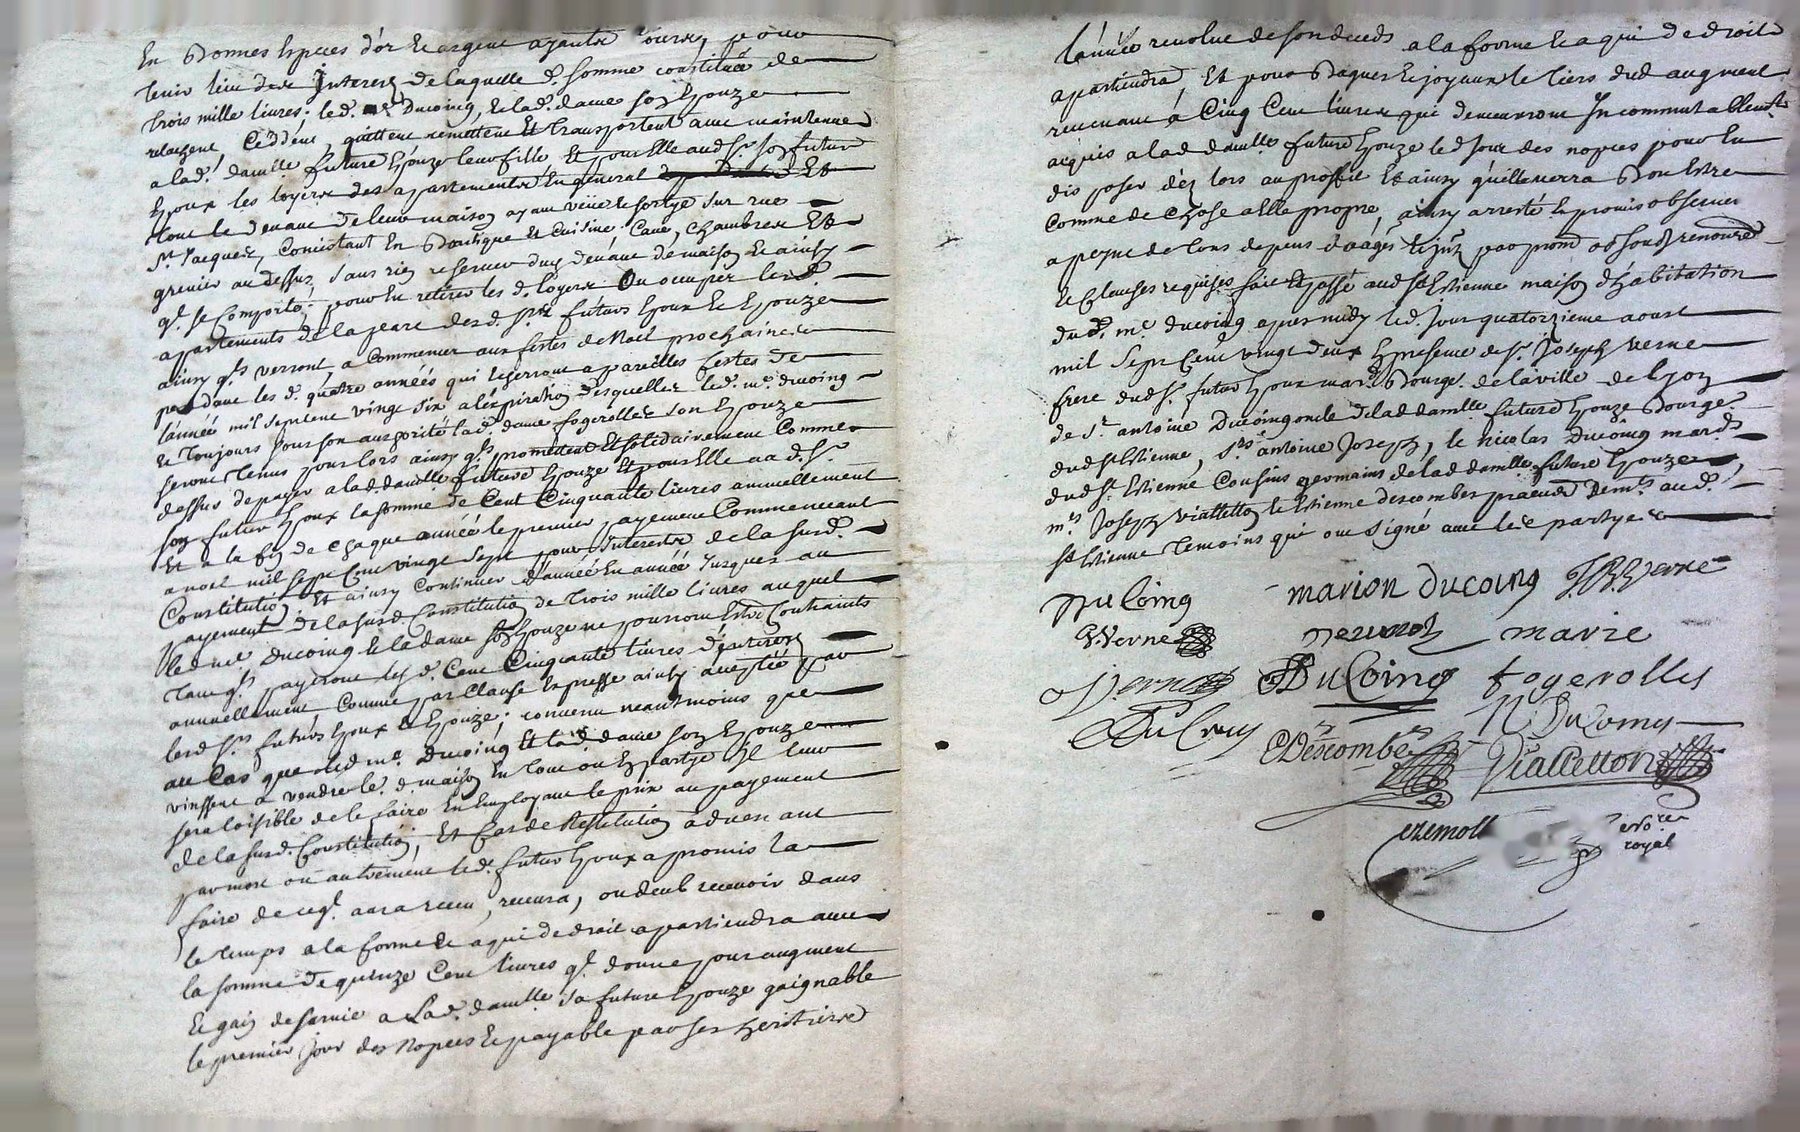 En Bonnes Especes d'or et argent ayants cours, pour
tenir lieu des Interests de laquelle d. somme constituée de
trois mille livres; led. me Ducoing, et lad. dame son Epouze
relachent Ceddent, quittent remettent Et transportent avec maintenue
a lad. damlle future Epouze leur fille Et pour Elle aud. Sr son futur
Epoux les loyers des apartements En general Et
tout le devant de leur maison ayant veue et sortye sur rue
St. Jacques, Consistant En Boutique Et Cuisine Cave, chambres Et
grenier au dessus, sans rien reserver dud. devant de maison Et ainsy
ql. se Comporte, pour En retirer les d. loyers Ou occuper lesd.
apartements de la part desd. Srs futurs Epoux Et Epouze
ainsy qls verront, a Commencer aux festes de Noel prochaines
pendant les d. quatre années qui Echerront a pareilles festes de
l'année mil sept cent vingt six a l'expiration desquelles led. me ducoing
Et toujours sous son authorité lad. dame fogerolles son Epouze
seront tenus pour lors ainsy qls promettent Et solidairement Comme
dessus de payer a lad. damlle future Epouze Et pour Elle aud. Sr
son futur Epoux la somme de Cent Cinquante livres annuellement
Et a la fin de chaque année le premier payement Commencant
a noel mil sept Cent vingt sept pour Interests de la susd.
Constitution Et ainsy Continuer d'année En année Jusques au
payement de la susd. Constitution de trois mille livres auquel
led. me Ducoing Et la dame son Epouze ne pourront Estre Contraints
tant qls payeront les d. Cent Cinquante livres d'interests
annuellement Comme par Clause Expresse ainsy acceptée par
lesd. Srs futurs Epoux Et Epouze; convenu neantmoins que
au Cas que led me. Ducoing Et lad. dame son Epouze
vinssent a vendre le. d. maison En tout ou En partye Il leur
sera loisible de le faire En Employant le prix au payement
de la susd. Constitution, Et Cas de Restitution advenant
par mort ou autrement led. futur Epoux a promis la
faire de ce ql. aura receu, recevra, ou deub recevoir dans
le temps a la forme Et a qui de droit apartiendra avec
la somme de quinze Cent livres ql. donne pour augment
Et gain de survie a Lad. damlle sa future Epouze gaignable
le premier Jour des Nopces Et payable par ses heritiers
l'année revolue de son deceds a la forme Et a qui de droit
apartiendra, Et pour Bagues Et joyaux le tiers dud. augment
revenant á Cinq Cent livres qui demeureront Incommutablemt
acquis a lad. damlle future Epouze led Jour des nopces pour En
disposer dez lors au proffit Et ainsy qu'elle verra Bon Estre
Comme de Chose a Elle propre, ainsy arresté Et promis observer
a peyne de tous depens
Et Clauses requises fait Et passé aud St. Estienne maison d'habitation
dud. me ducoing apres midy led. jour quatorzieme aoust
mil Sept Cent vingt deux En presence de Sr. Joseph Verne
frere dud Sr. futur Epoux mard. Bourg. de la ville de Lyon
de Sr. antoine Ducoing oncle de lad damlle future Epouze Bourgs.
dud St. Estienne, Srs. antoine Joseph, Et Nicolas Ducoing mards.
dud St. Estienne Cousins germains de lad damlle future Epouze
mes. Joseph Vialletton Et Estienne descombes praticiens Demts. aud.
St. Estienne temoins qui ont signé avec les partyes
Du Coing marion ducoing J.B. Verne
Verne marie
Verne Du Coing fogerolles
Du Coing Descombes N. Du Coing
Vialletton
royal